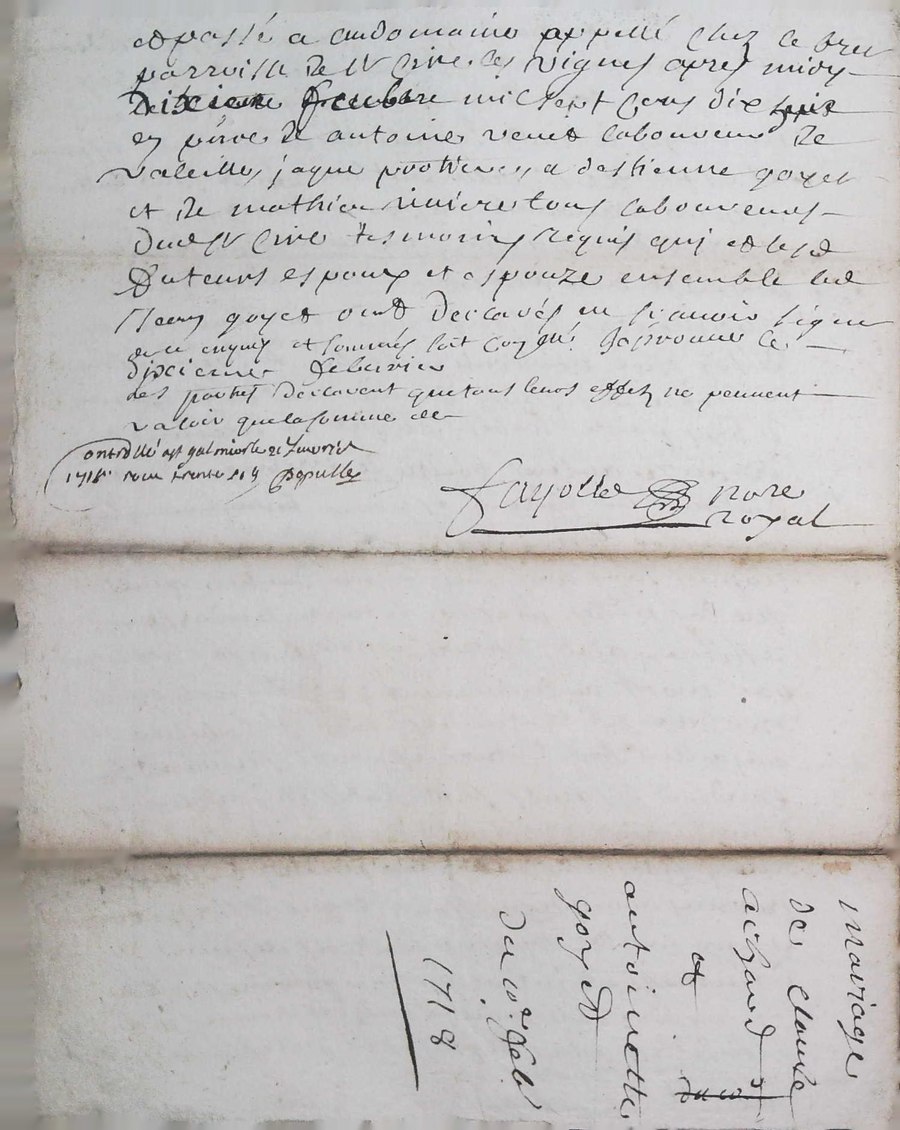 et passé a au domaine appellé chez le bret
parroisse de st Cire les vignes apres midy
dixieme feubre mil sept cens dix huit
en pñce de antoine venet laboureur de
valeille, jaque a destienne goyet
et de mathieu riviere tous laboureurs
dud st Cire tesmoins requis qui et lesd
futeurs espoux et espouze ensemble led
goyet ont declarés ne scavoir signer
de ce enquis et sommés soit ce
dixieme febvrier
des parties declarent que tous leurs effets ne peuvent
valoir que la somme de
ontrollé a st galmier le 21 feuvrier
1718 receu trente sols
fayolle nore
royal
mariage
de Claude
achard
et
antoinette
goyett
du 10e feb.
1718